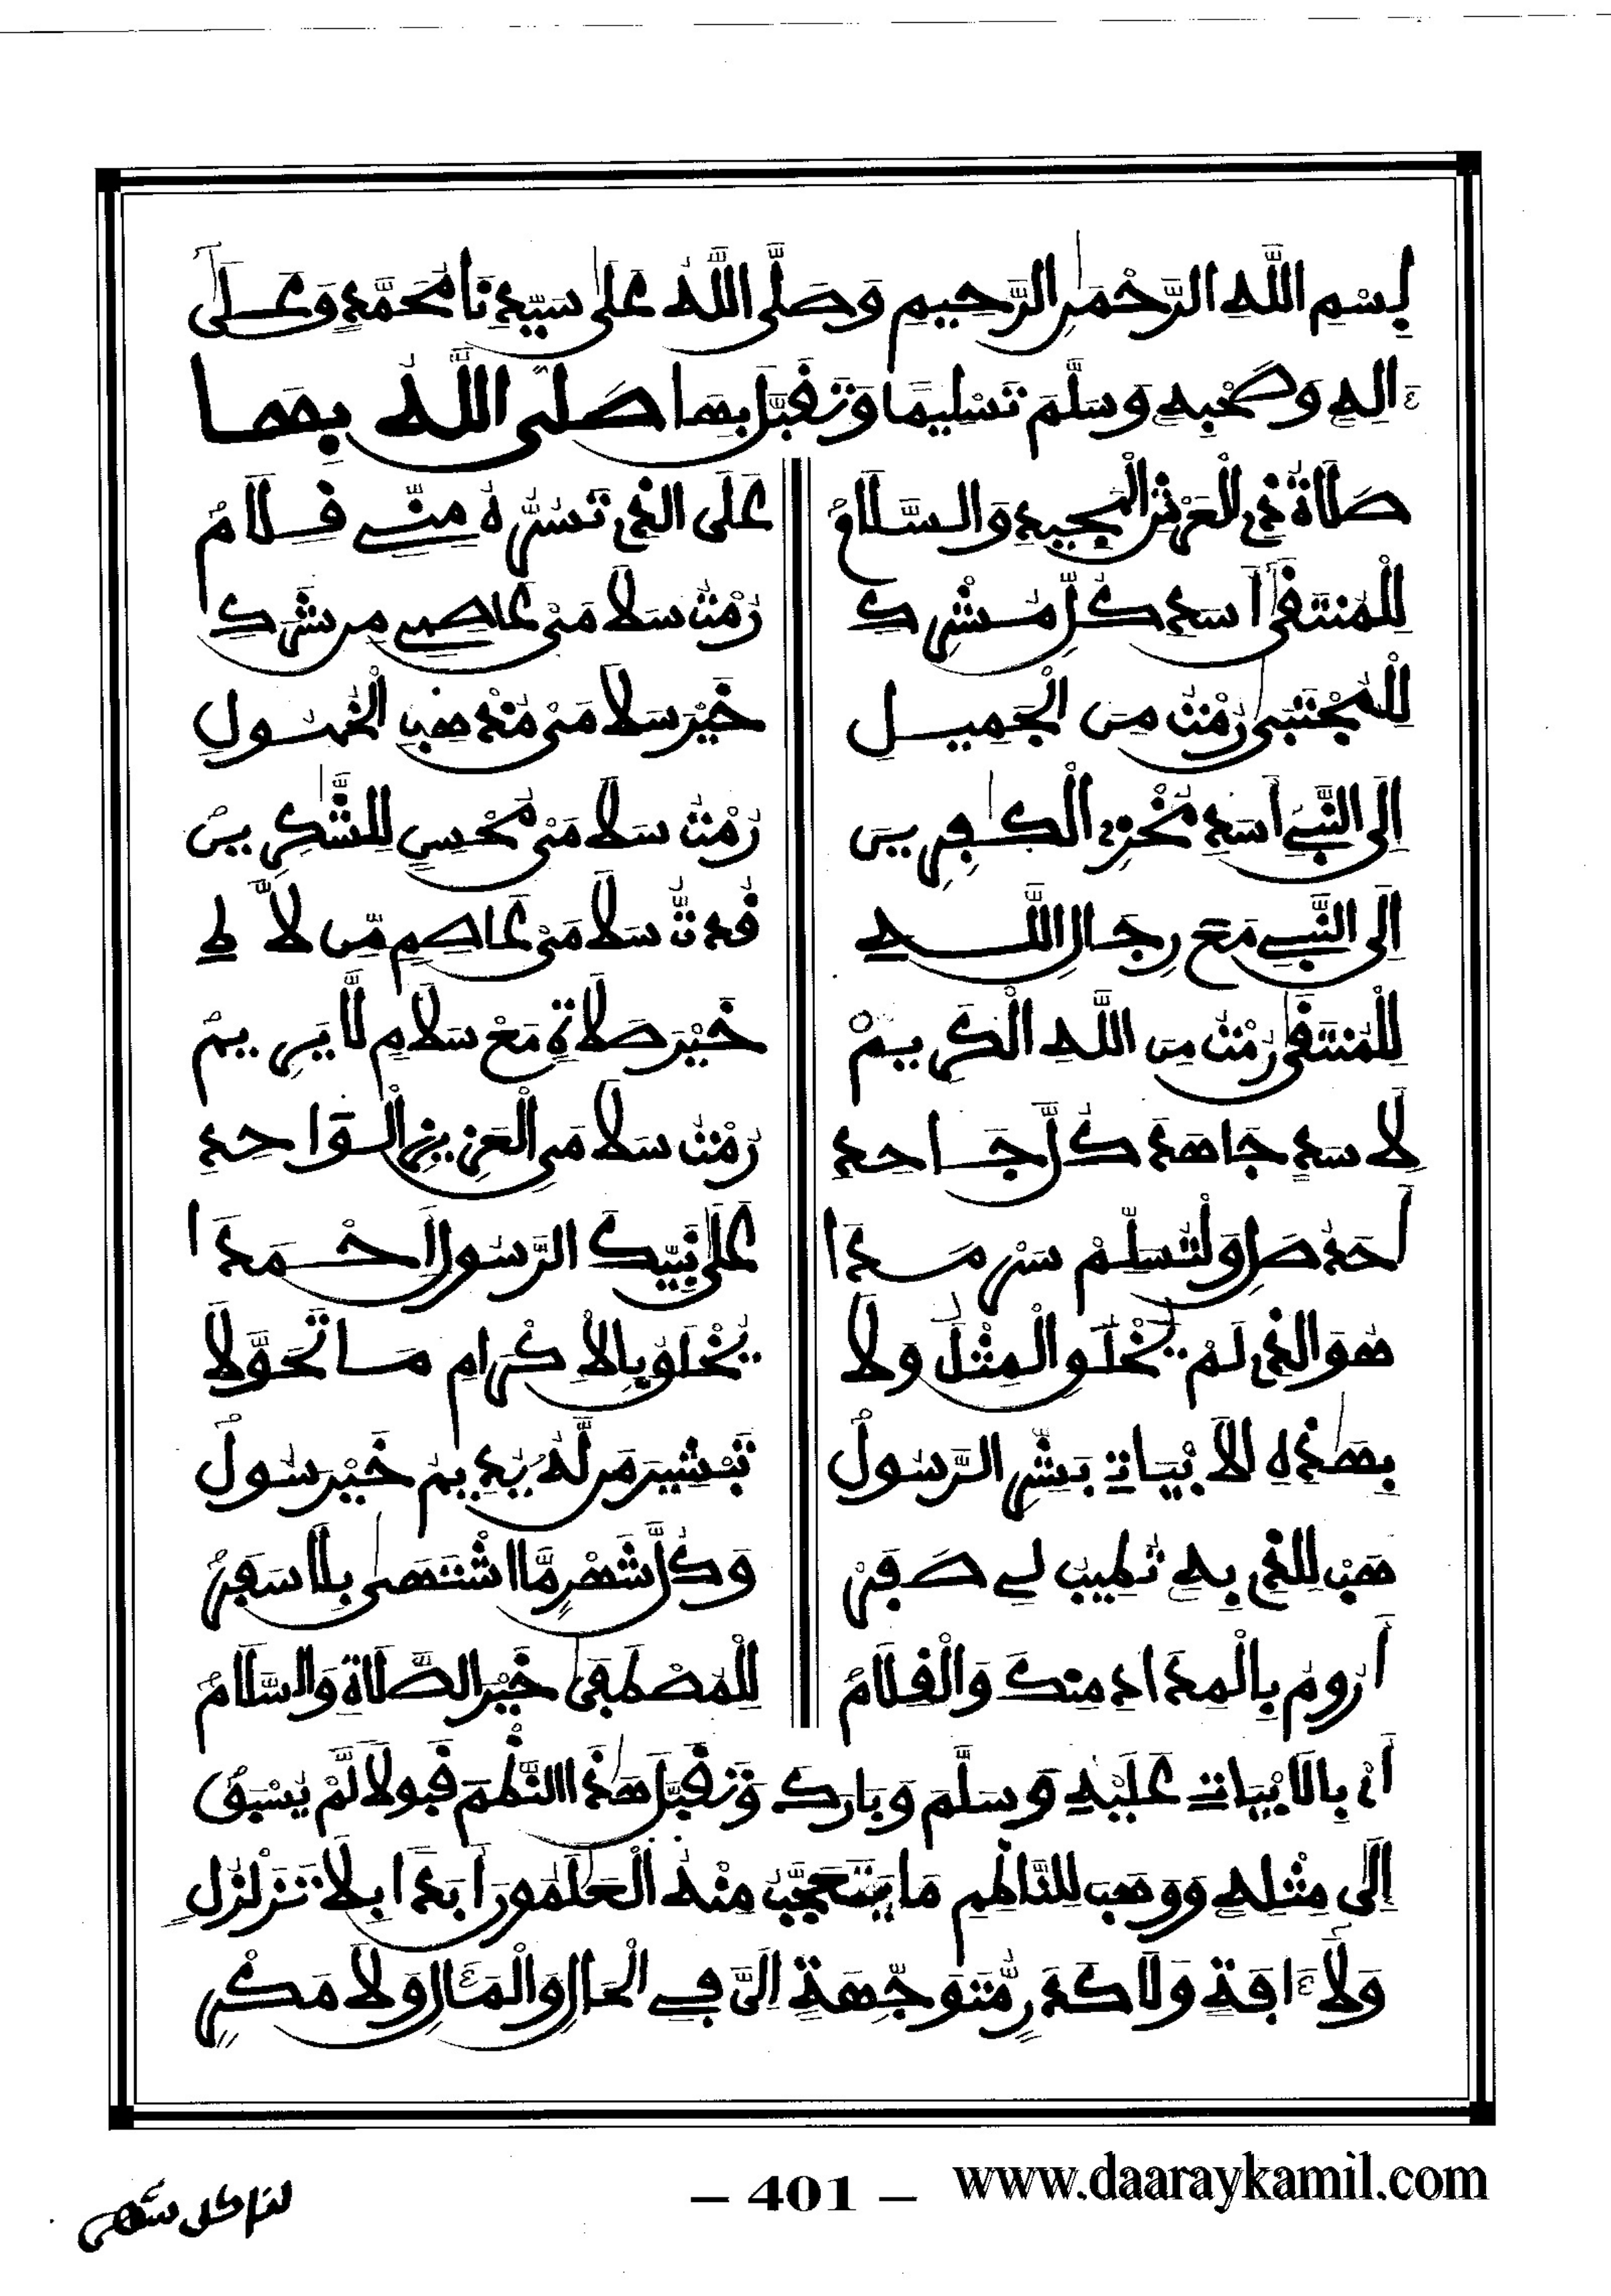 بِسْمِ اللَّهِ الرَّحْمَٰنِ الرَّحِيمِ وَصَلَّى اللَّهُ عَلَى سَيِّدِنَا مُحَمَّدٍ وَعَلَى
ءَالِهِ وَصَحْبِهِ وَسَلَّمَ تَسْلِيمًا وَتَقَبَّلْ بِهَا صَلَّى اللَّهُ بِهَا
صَلَاةُ ذِي الْعَرْشِ الْمَجِيدِ وَالسَّلَامُ عَلَى الَّذِي تَسُرُّهُ مِنِّي قِلَامُ
لِلْمُنْتَقَى أَسَدِ كُلِّ مُشْرِكِ رُمْتُ سَلَامَيْ عَاصِمِي مِن شَرَكِ
لِلْمُجْتَبَى رُمْتُ مِنَ الْجَمِيلِ خَيْرَ سَلَامَيْ مُذْهِبِ الْخُمُولِ
إِلَى النَّبِي أَسَدِ مُخْزِي الْكَٰفِرِينَ رُمْتُ سَلَامَيْ مُحْسِنٍ لِلشَّٰكِرِينْ
إِلَى النَّبِي مَعَ رِجَالِ اللَّهِ قُدتُّ سَلَامَيْ عَاصِمٍ مِّن لَّاهِ
لِلْمُنْتَقَى رُمْتُ مِنَ اللَّهِ الْكَرِيمْ خَيْرَ صَلَاةٍ مَعْ سَلَامٍ لَّا يَرِيمْ
لِأَسَدٍ جَاهَدَ كُلَّ جَاحِدِ رُمْتُ سَلَامَيِ الْعَزِيزِ الْوَاحِدِ
أَحَدُ صَلِّ وَلْتُسَلِّمْ سَرْمَدَا عَلَى نَبِيِّكَ الرَّسُولِ أَحْمَدَا
هُوَ الَّذِي لَمْ يَخْلُ وَالْمِثْلُ وَلَا يَخْلُو بِالْإِكْرَامِ مَا تَحَوَّلَا
بِهَٰذِهِ الْأَبْيَاتِ بَشِّرِ الرَّسُولْ تَبْشِيرَ مَن لَّهُ يُدِيمُ خَيْرَ سُولْ
هَبْ لِلَّذِي بِهِ تُطَيِّبُ لِي صَفَرْ وَكُلَّ شَهْرٍ مَّا اشْتَهَى بِلَا سَفَرْ
أَرُومُ بِالْمِدَادِ مِنْكَ وَالْقِلَامُ لِلْمُصْطَفَى خَيْرَ الصَّلَاةِ وَالسَّلَامُ
أَيْ بِالْأَبْيَاتِ عَلَيْهِ وَسَلِّمْ وَبَارِكْ وَتَقَبَّلْ هَٰذَا النَّظْمَ قَبُولًا لَّمْ يُسْبَقْ
إِلَى مِثْلِهِ وَوَهَبَ لِلنَّاظِمِ مَا يَتَعَجَّبُ مِنْهُ الْعَٰلَمُونَ أَبَدًا بِلَا تَزَلْزُلٍ
وَلَا ءَافَةٍ وَلَا كَدَرٍ مُّتَوَجِّهَةٍ إِلَيَّ فِي الْحَالِ وَالْمَآلِ وَلَا مَكْرٍ
لنا كل شهر
– 401 – www.daaraykamil.com